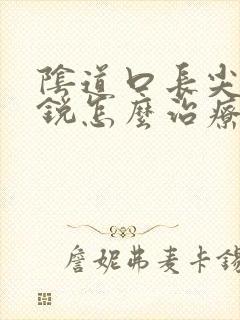 陰道口長尖
銳怎麼治療
詹妮弗麦卡錫